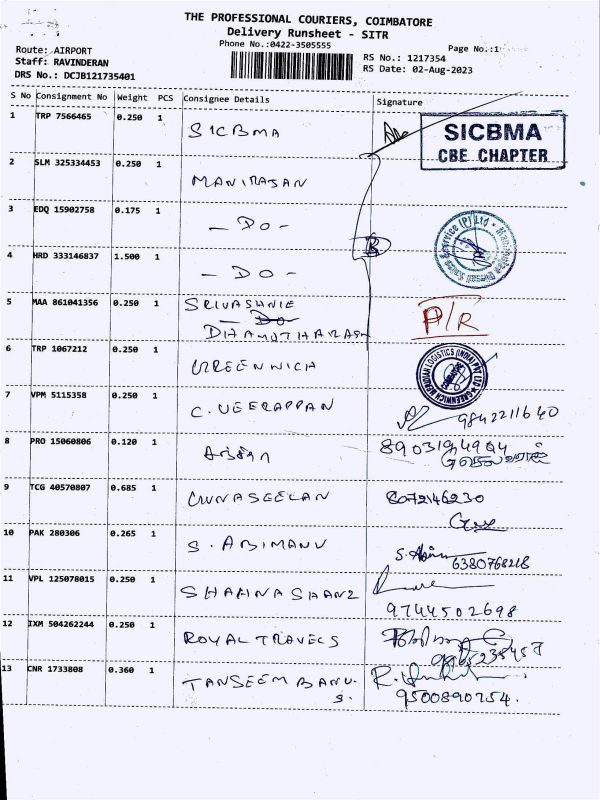 THE PROFESSIONAL COURIERS, COIMBATORE
Delivery Runsheet - SITR
Phone No.:0422-3505555
Page No.:1
Route: AIRPORT
Staff: RAVINDERAN
DRS No.: DCJB121735401
RS No.: 1217354
RS Date: 02-Aug-2023
S No Consignment No Weight PCS Consignee Details Signature
1 TRP 7566465 0.250 1 SICBMA
SICBMA
CBE CHAPTER
2 SLM 325334453 0.250 1 MANIRAJAN
3 EDQ 15902758 0.175 1 - DO -
4 HRD 333146837 1.500 1 - DO -
5 MAA 861041356 0.250 1 SRIVASHNIE
DO
DHAMOTHARASN
A/R
6 TRP 1067212 0.250 1 GREENWICH
GREENWICH MERIDIAN LOGISTICS (INDIA) PVT LTD
7 VPM 5115358 0.250 1 C. VEERAPPAN
9842211640
8 PRO 15060806 0.120 1
8903194994
9 TCG 40570807 0.685 1 GUNASEELAN 8072146230
10 PAK 280306 0.265 1 S. ABIMANU
6380768218
11 VPL 125078015 0.250 1 SHAHNA SHANZ
9744502698
12 IXM 504262244 0.250 1 ROYAL TRAVELS
13 CNR 1733808 0.360 1 TANSEEM BANU.
S.
9500890754.